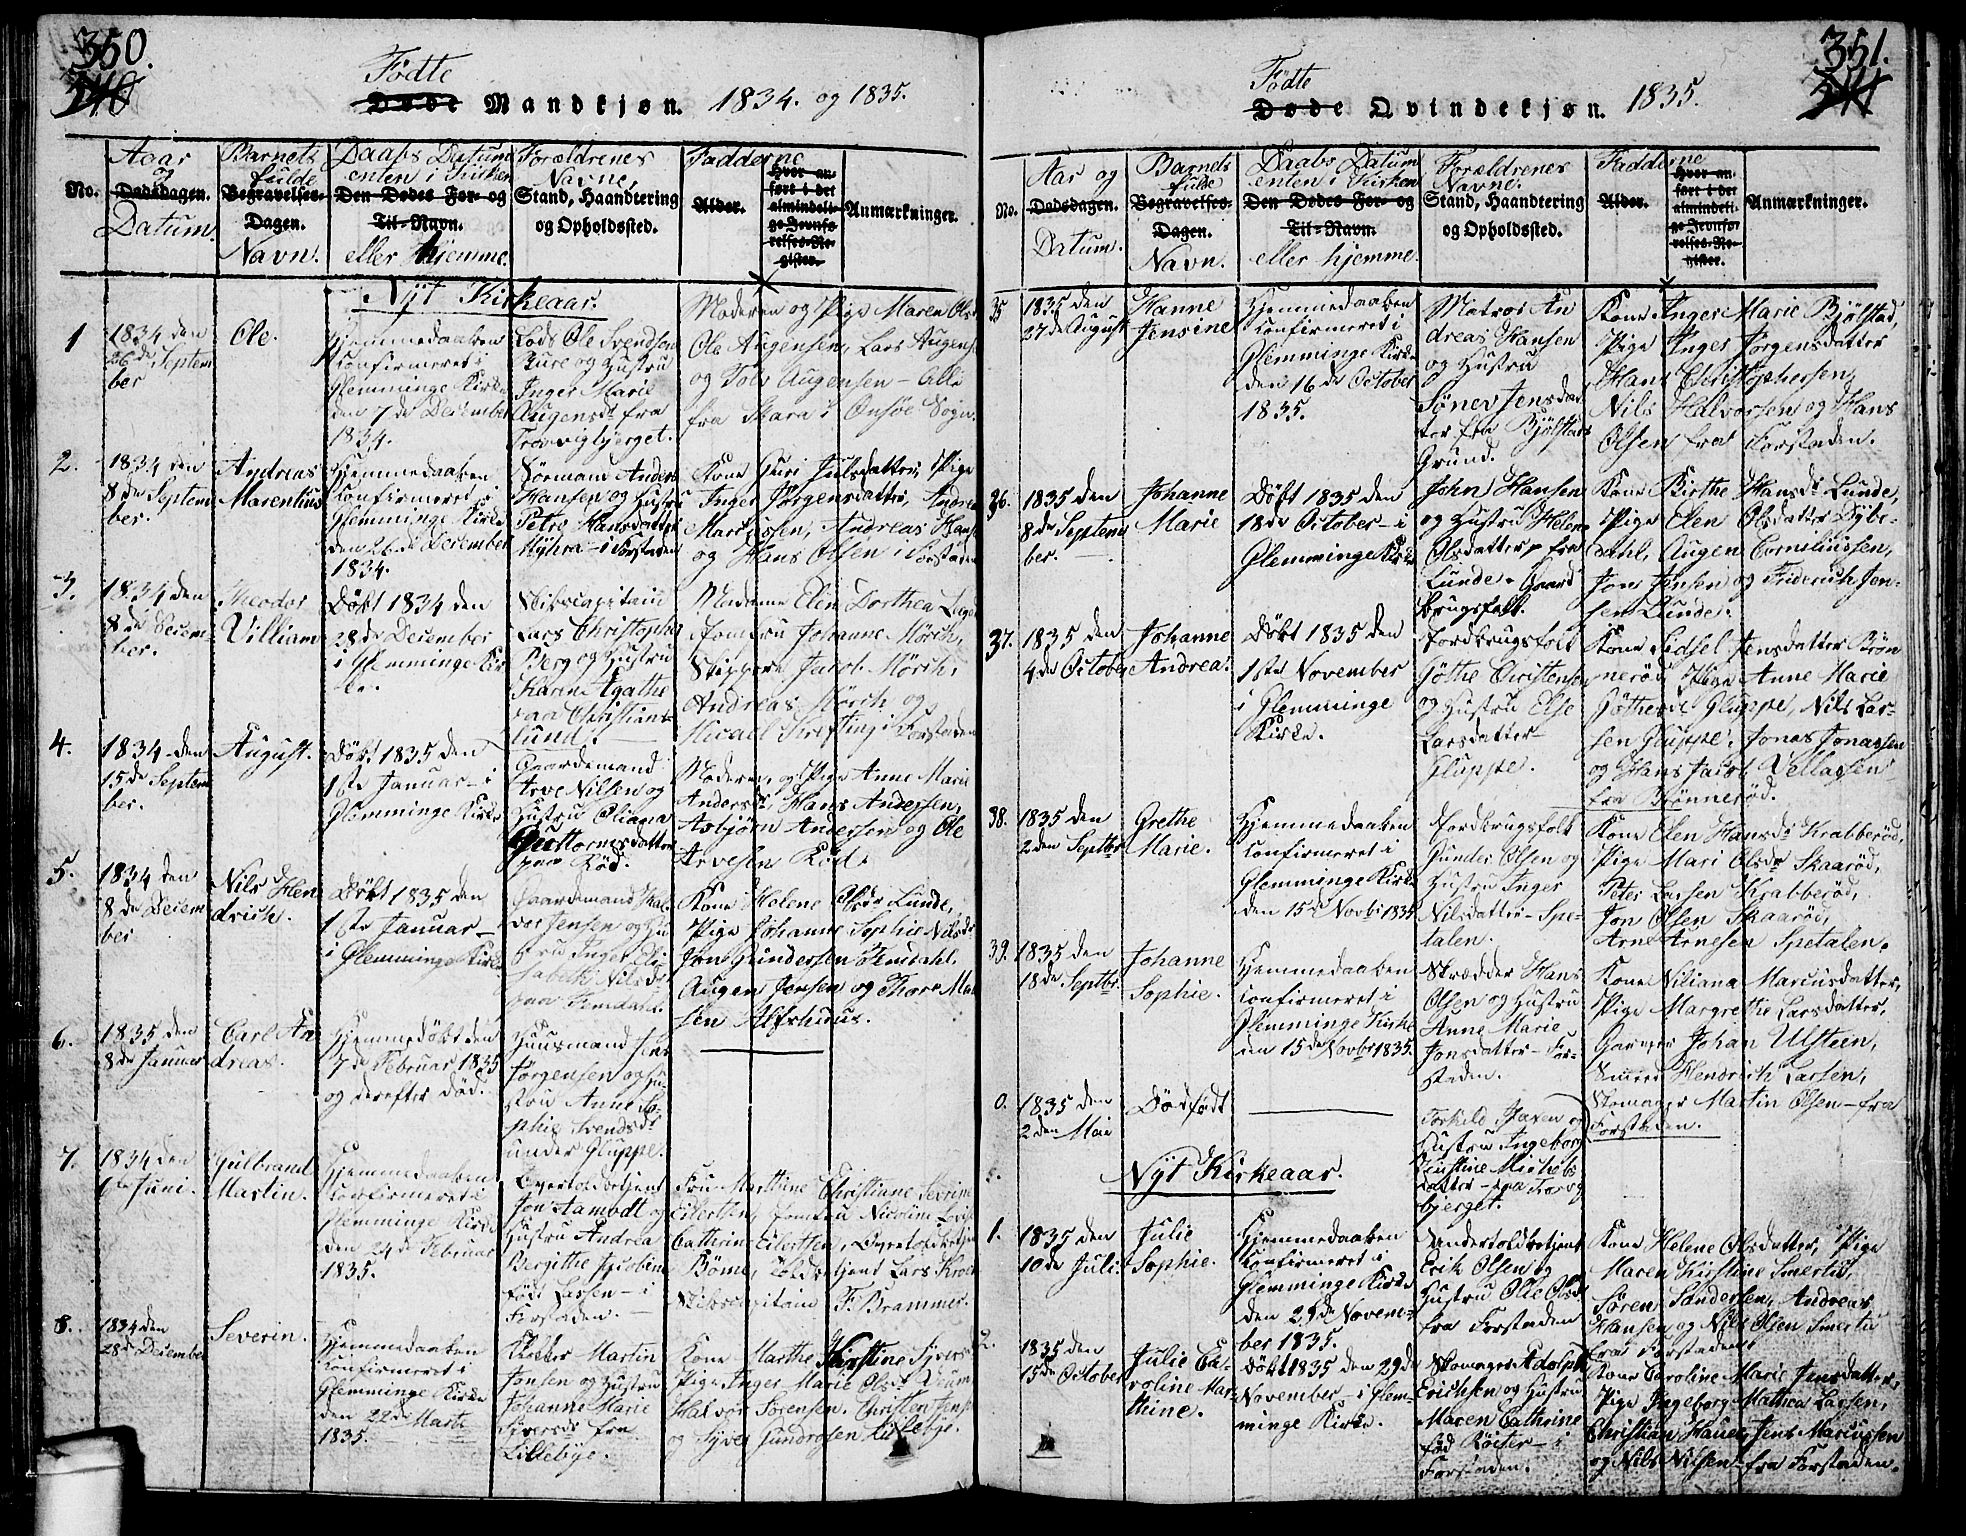 350.
Födte
Døde Mandkjøn. 1834. og 1835.
No.
Aar og Datum.
Dødsdagen.
Barnets fulde Navn.
Begravelses-Dagen.
Daabs Datum enten i Kirken eller hjemme.
Den Dødes For- og Til-Navn.
Forældrenes Navne,
Stand, Haandtering og Opholdssted.
Fadderne
Alder.
Hver anført i det almindelige Jevnførelses-Register.
Anmærkninger.
Nyt Kirkeaar.
1
1834 den
26de Septem
ber
Ole.
Hjemmedaaben
Confirmeret i
Glemminge Kirke
den 7de December
1834.
Lods Ole Svendsen
og Hustru
Inger Marie
Augensdr fra
Moderen og Pige Maren Ols
Ole Augensen, Lars Augens
og Augensen
fra Skara i Onsøe Sogn.
2.
1834 den
8de Septem
ber.
Andreas
Marentius
Hjemmedaaben
Confirmeret i
Glemminge Kirke
den 26de December
1834.
Sørmand Anders
Hansen og Hustru
Petro Hansdatter
i Forstaden
Kone Guri Julsdatter, Pige
Inger Jørgensdatter, Andreas
Andreas Hans
og Hans Olsen i Forstaden
3.
1834 den
8de Decem-
ber.
Theodor
Villiam
Döbt 1834 den
28de December
i Glemminge Kir
ke.
Skibscapitain
Lars Christopher
Berg og Hustru
Karen Agathe
paa Christians
lund.
Madame Elen Dorthea
Jomfru Johanne Mörch,
Skipperne Jacob Mörch,
Andreas Mörch og
Micael Krefting i Forstaden
4.
1834 den
15de Septem
ber.
August.
Döbt 1835 den
1ste Januar i
Glemminge Kirke
Gaardemand
Arve Nilsen og
Hustru Oliana
Guttormsdatter
paa Rød.
Moderen og Pige Anne Marie
Andersdr, Hans Andersen,
Asbjörn Andersen og Ole
Arvesen Röd.
5.
1834 den
8de Decem
ber
Nils Hen
drich.
Döbt 1835 den
1ste Januar
i Glemminge Kirke
Gaardemand Hal
vor Jensen og Hu
stru Inger Eli
sabeth Nilsdr
paa
Kone Helene Olsdr Lunde,
Pige Johanne Sophie Nilsdr
Jon Gundersen
Augen Jensen og Thore Mad
sen Alfshuus.
6.
1835 den
8de Januar
Carl An
dreas.
Hjemmedöbt den
7de Februar 1835
og derefter död.
Huusmand Jens
Jörgensen og Hu
stru Anne So-
phie Svendsdr
under Gluppe.
7.
1834 den
6te Juni.
Gulbrand
Martin.
Hjemmedaaben
Confirmeret i
Glemminge Kirke
den 24de Februar
1835.
Overtoldbetjent
Jon Aamodt og
Hustru Andrea
Bergithe Jacobine
född Lassen - i
Forstaden.
Fru Marthine Christiane Severine
Eilertsen, Jomfru Nicoline
Cathrine Eilertsen, Overtoldbe
tjent Lars
Skibscapitain F. Brammer.
8.
1834 den
28de December
Severin.
Hjemmedaaben
Confirmeret i
Glemminge Kirke
den 22de Marts
1835.
Martin
Jonsen og Hustru
Johanne Marie
Syversdr fra
Lillebye.
Kone Marthe Kirstine Syvers
Pige Inger Marie Olsdr
Halvor Sörensen, Christen Jens
og Syver Gundrosen Lillebye.
351.
Födte
Døde Qvindekjøn. 1835.
No.
Aar og Datum.
Dødsdagen.
Barnets fulde Navn.
Begravelses-Dagen.
Daabs Datum enten i Kirken eller hjemme.
Den Dødes For- og Til-Navn.
Forældrenes Navne.
Stand, Haandtering og Opholdssted.
Fadderne
Alder.
Hver anført i det almindelige Jevnførelses-Register.
Anmærkninger.
35
1835 den
27de August
Hanne
Jensine
Hjemmedaaben
Confirmeret i
Glemminge Kirke
den 16de October
1835.
Matros An
dreas Hansen
og Hustru
Jensdat
ter fra Bjölstad
Grund.
Kone Inger Marie Bjölstad,
Pige Inger Jörgensdatter
Hans Christophersen,
Nils Halvorsen og Hans
Olsen fra Forstaden.
36.
1835 den
8de Septem
ber.
Johanne
Marie
Döbt 1835 den
18de October - i
Glemminge Kirke
John Hansen
og Hustru Helene
Olsdatter fra
Lunde. Gaard
brugsfolk.
Kone Birthe Hansdr Lunde,
Pige Elen Olsdatter Dybe-
dahl, Augen Corneliussen,
Jon Jensen og Friderich Jen-
sen Lunde.
37.
1835 den
4de October
Johanne
Andrea.
Döbt 1835 den
1ste November
i Glemminge
Kirke.
Jordbrugsfolk
Göthe Christensen
og Hustru Else
Larsdatter
Gluppe.
Kone Sidsel Jensdatter Brön
neröd, Pige Anne Marie
Göthesdr Gluppe, Nils Lar-
sen Gluppe. Jonas Jonassen
og Hans Jacob Vellagsen
fra Brönneröd.
38.
1835 den
2den Septbr
Grethe
Marie.
Hjemmedaaben
Confirmeret i
Glemminge Kirke
den 15de Novbr 1835
Jordbrugsfolk
Gunder Olsen og
Hustru Inger
Nilsdatter - Spe-
talen.
Kone Elen Hansdr Krabberöd,
Pige Mari Olsdr Skaaröd,
Peter Larsen Krabberöd,
Jon Olsen Skaaröd,
Arne Arnesen Spetalen.
39.
1835 den
18de Septbr
Johanne
Sophie.
Hjemmedaaben
Confirmeret i
Glemminge Kirke
den 15de Novbr 1835.
Skrædder Hans
Olsen og Hustru
Anne Marie
Jonsdatter - For-
staden.
Kone Niliana Marcusdatter,
Pige Margrethe Larsdatter,
Garver Johan Ulsteen,
Smed Hendrich Larsen,
Skomager Martin Olsen - fra
Forstaden.
0.
1835 den
2den Mai
Dödfödt
Torkild og
Hustru Ingeborg
Kirstine Michels
datter - fra
bjerget.
Nyt Kirkeaar.
1.
1835 den
10de Juli.
Julie
Sophie.
Hjemmedaaben
Confirmeret i
Glemminge Kirke
den 29de Novem-
ber 1835.
Undertoldbetjent
Erik Olsen og
Hustru Olsdr
fra Forstaden
Kone Helene Olsdatter, Pige
Maren Kirstine Smertu,
Sören Sandersen, Andreas
Hansen og Nils Olsen Smertu
fra Forstaden.
2.
1835 den
15de October
Julie Ca-
roline Mar-
thine.
Döbt 1835 den 29de
November - i Glem-
minge Kirke.
Skomager Adolph
Erichsen og Hustru
Maren Cathrine
född Röiter - i
Forstaden.
Kone Caroline Marie Jensdatter,
Pige Ingeborg Mathea Larsen,
Christian Hauer, Jens Marcussen
og Nils Nilsen - fra Forstaden.